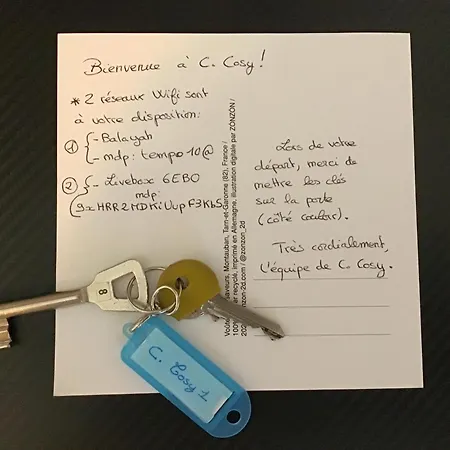 Bienvenue à C. Cosy !
* 2 réseaux Wifi sont
à votre disposition:
1) { - Balayah
- mdp: tempo10@
2) { - Livebox 6EB0
mdp:
Lors de votre
départ, merci de
mettre les clés
sur la porte
(côté couloir).
Très cordialement,
L'équipe de C. Cosy.
Montauban, Tarn-et-Garonne (82), France /
recyclé, imprimé en Allemagne, illustration digitale par ZONZON /
zonzon-2d.com / @zonzon_2d
8
C. Cosy 1